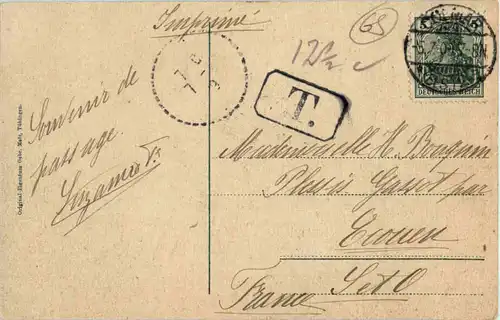 Imprimé
68
12½
T.
DEUTSCHES REICH
Souvenir de
passage
Mademoiselle H. Bouquin
Plessis Gassot par
Ecouen
S et O
France
Original-Eigentum Gebr. Metz, Tübingen.